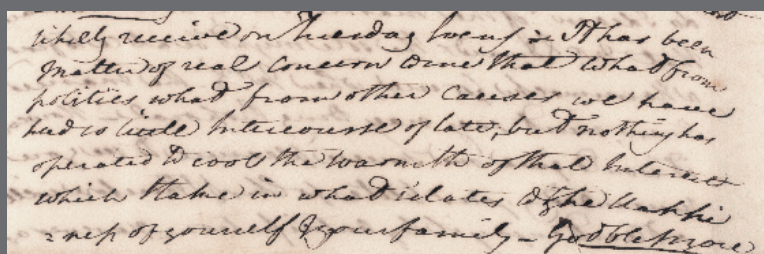 likely receive on Tuesday Eveng :- It has been
matter of real Concern to me that what from
politics what from other Causes we have
had so little Intercourse of late, but nothing has
operated to cool the warmth of that Interest
which I take in what relates to the Happi
= ness of yourself & your family - God bless you